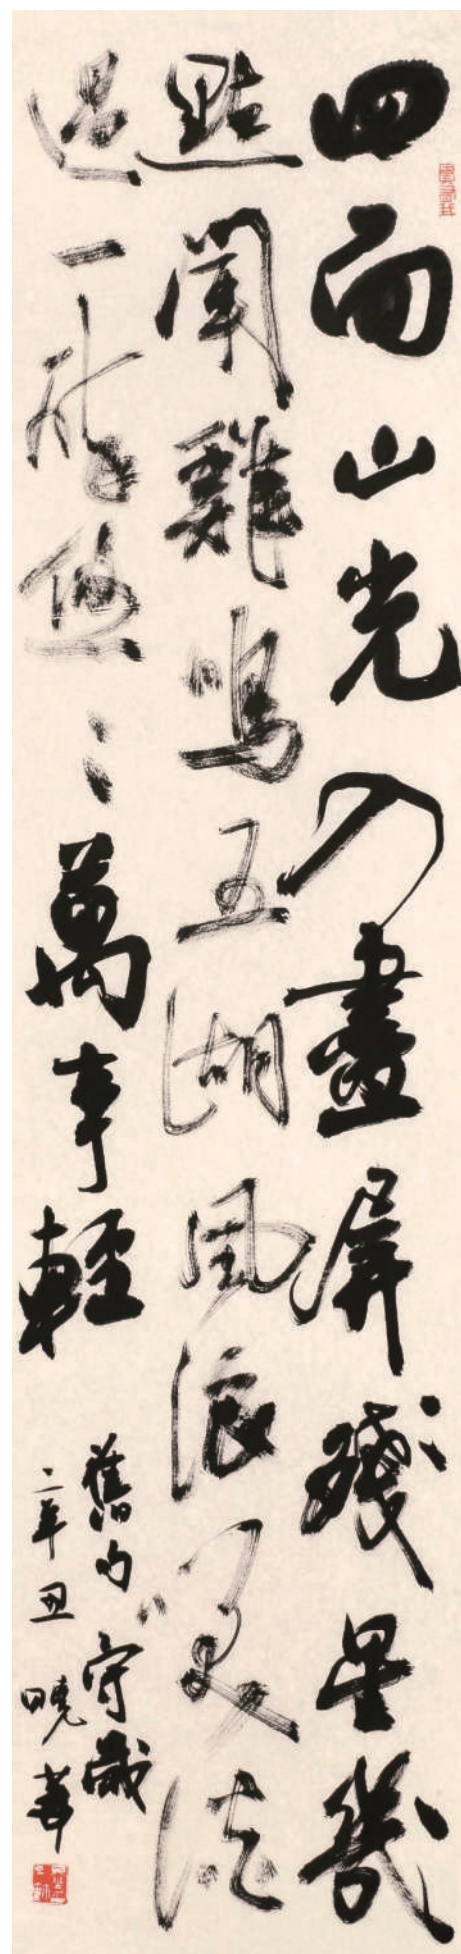 四面山光入畫屏殘星幾
點聞雞鳴五湖風浪笑談
過一悠〻萬事輕
舊句守歲
辛丑曉華